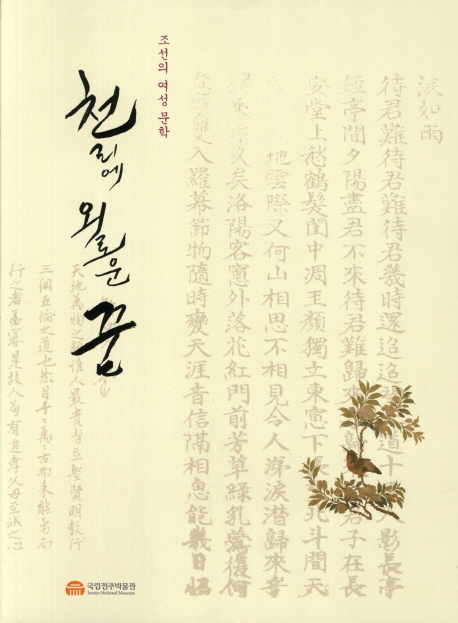 조선의 여성 문학
천리에 외로운 꿈
淚如雨
待君難待君難待君幾時還迢迢 道十 人影長亭
短亭間夕陽盡君不來待君難歸來 君子在長
安堂上愁鶴髮閨中凋玉顏獨立東窓下長 北斗間天
地雲際又何山相思不相見令人涕淚潸歸來
歸來 矣洛陽客窓外落花紅門前芳草綠乳鶯復何
雙入羅幕節物隨時變天涯音信隔相思能幾日
天地萬物之 惟人最貴 立聖賢明敎行
三綱五倫之道也然自千 萬古而來能 而
行之者 是故人 有 孝父母至誠之心
국립전주박물관
Jeonju National Museum